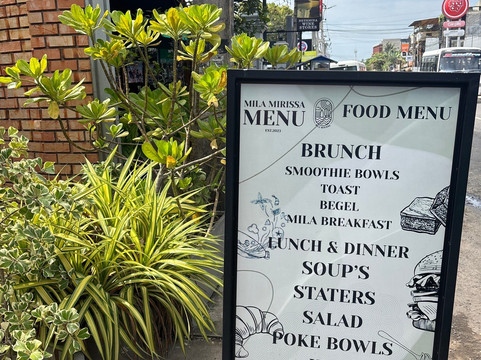 MILA MIRISSA
MENU
EST.2023
FOOD MENU
BRUNCH
SMOOTHIE BOWLS
TOAST
BEGEL
MILA BREAKFAST
LUNCH & DINNER
SOUP'S
STATERS
SALAD
POKE BOWLS